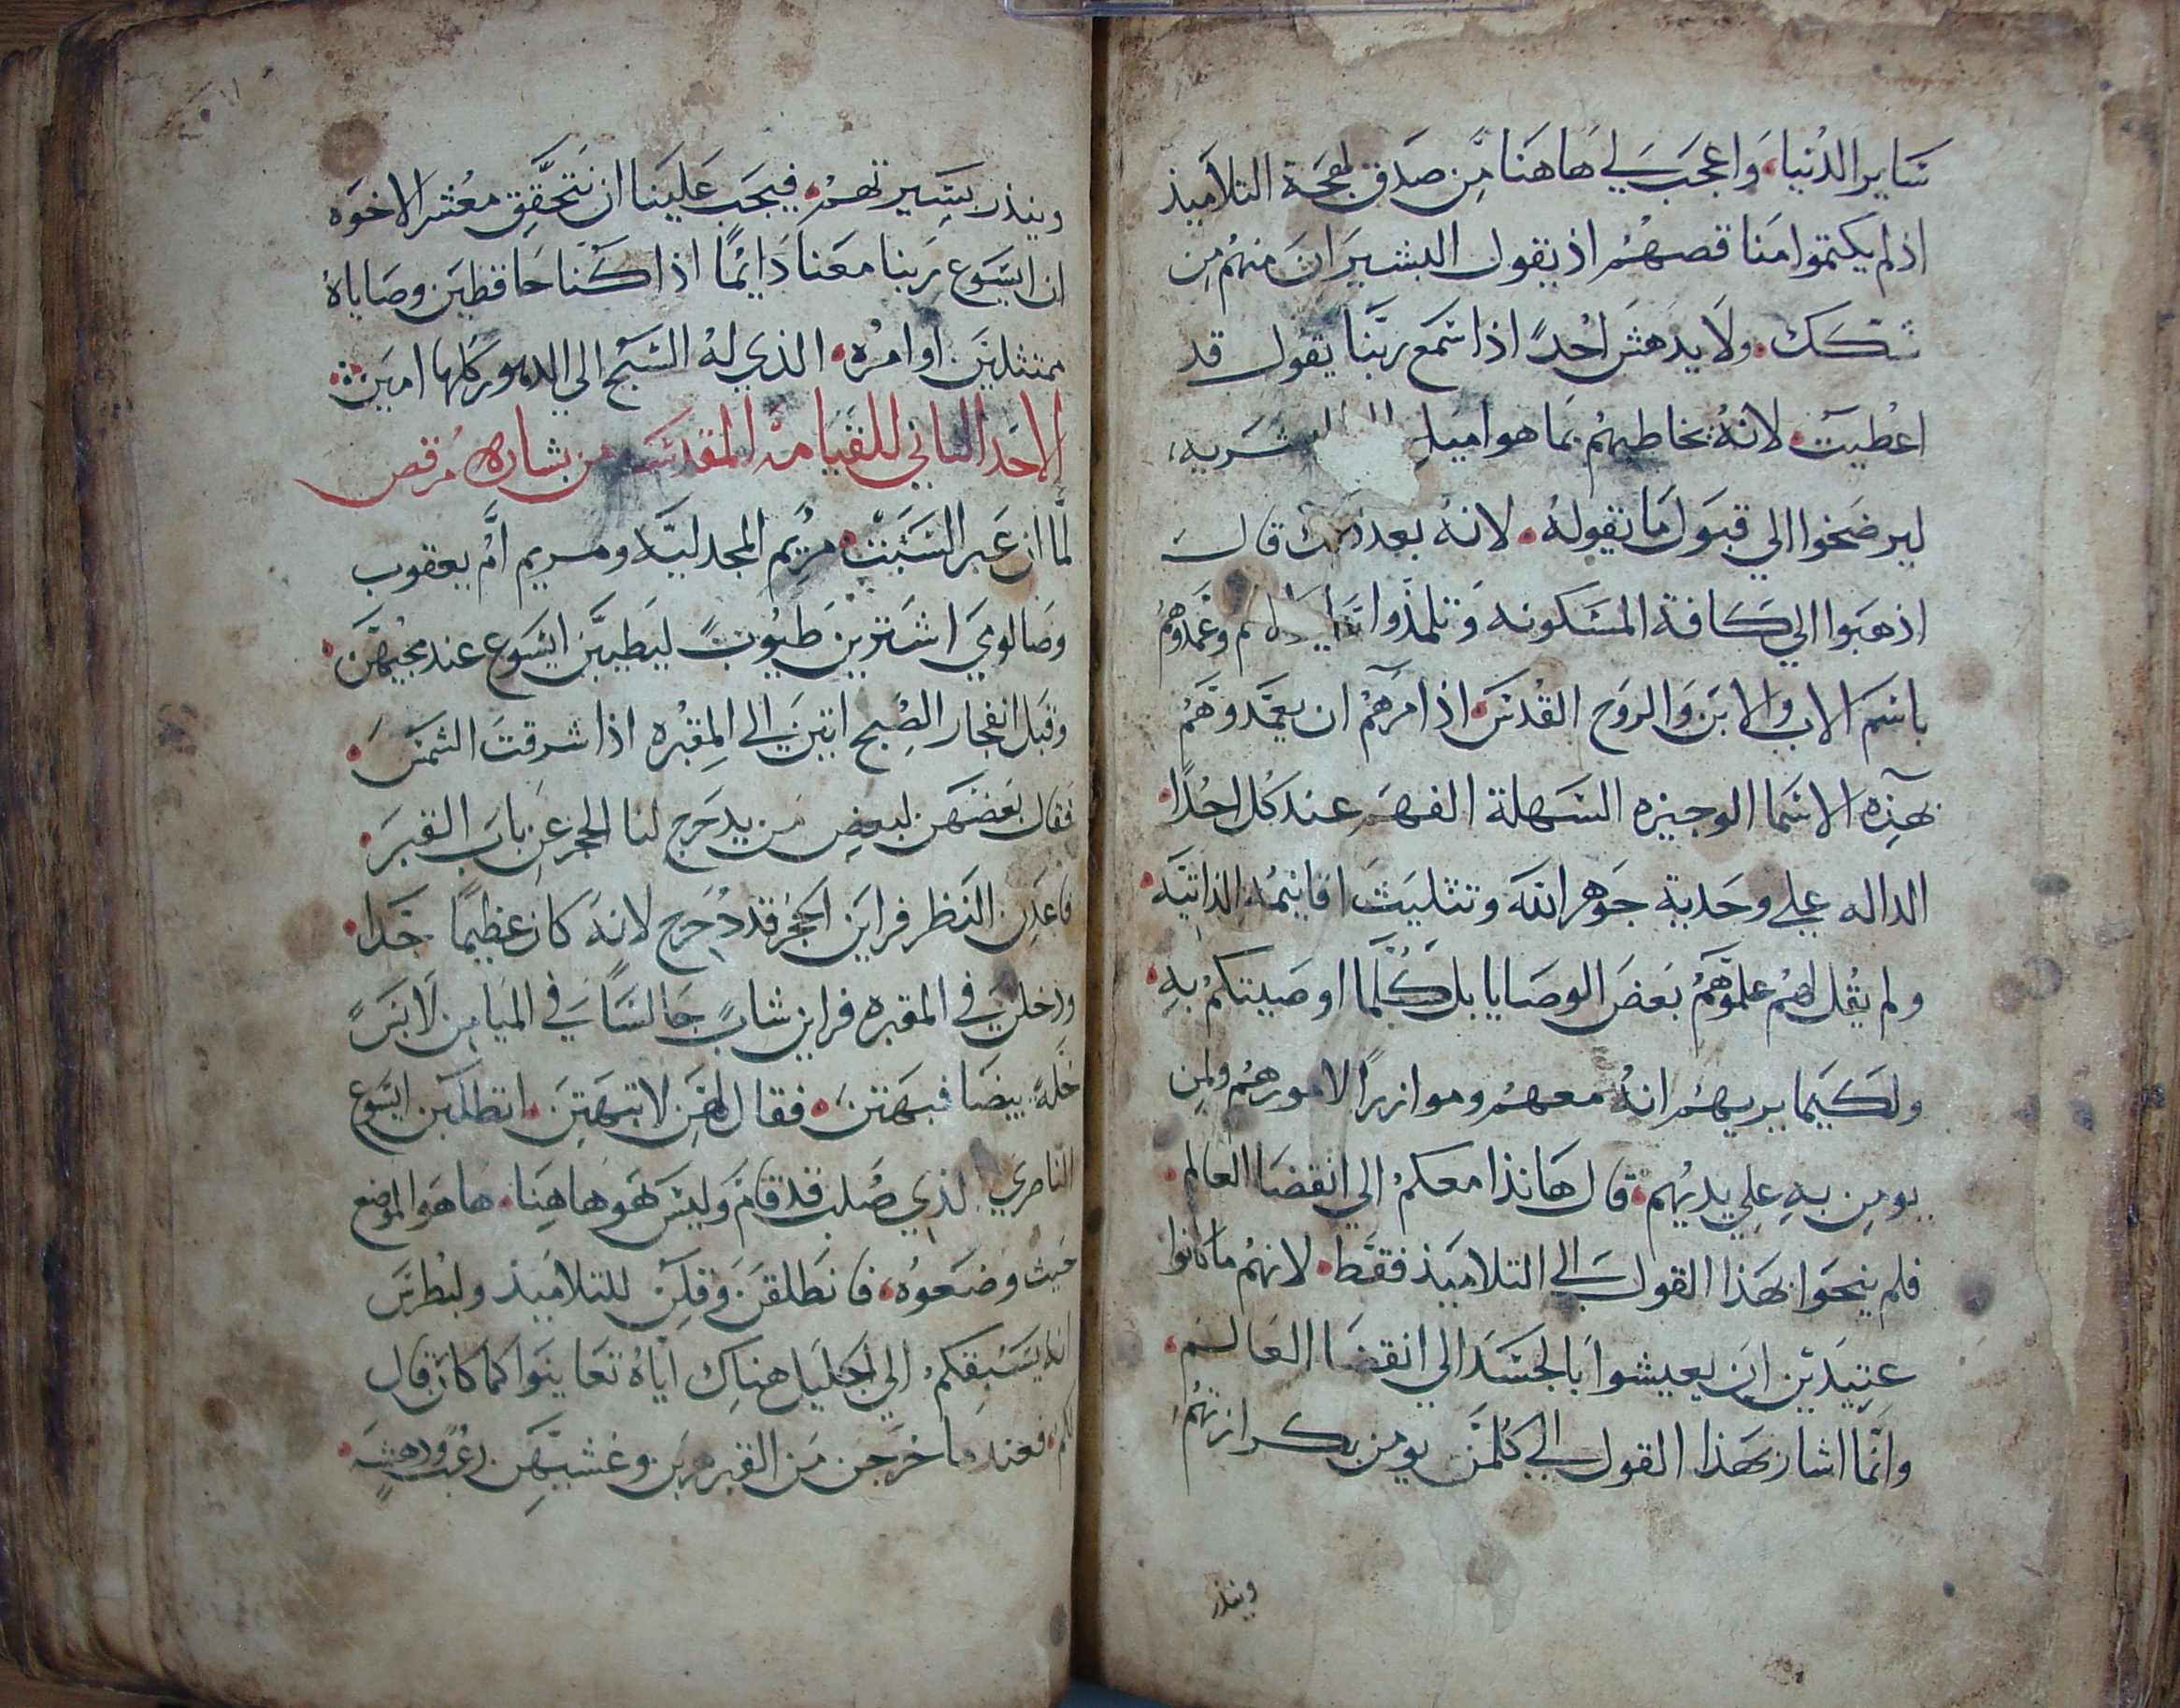 ساير الدنيا، واعجب لي هاهنا من صدق لهجة التلاميذ
اذ لم يكتموا منا قصهم اذ يقول البشير ان منهم من
شكك. ولا يدهش احدًا اذا سمع ربنا يقول قد
اعطيت. لانه يخاطبهم بما هو اميل البشريه،
ليرضخوا الي قبول ما يقوله. لانه بعد ذلك قال
اذهبوا الي كافة المسكونه وتلمذوا وعمدوهم
باسم الاب والابن والروح القدس. اذ امرهم ان يعمدوهم
بهذه الاسما الوجيزه السهلة الفهم عند كل احدًا.
الداله علي وحدية جوهر الله وتثليث اقانيمه الذاتية.
ولم يقل لهم علموهم بعض الوصايا بل كلما اوصيتكم به.
ولكيما يريهم انه معهم وموازرًا لامورهم ولمن
يومن به علي يديهم. قال هانذا معكم الي انقضا العالم.
فلم ينحوا بهذا القول الي التلاميذ فقط. لانهم ما كانوا
عتيدين ان يعيشوا بالجسد الي انقضا العالم.
وانما اشار بهذا القول الي كلمن يومن بكرازتهم،
وينذر
وينذر بسيرتهم. فيجب علينا ان نتحقق معشر الاخوه
ان ايسوع ربنا معنا دايمًا اذا كنا حافظين وصاياه
ممتثلين اوامره. الذي له السبح الي الدهور كلها امين
الاحد الثاني للقيامه المقدسه من بشاره مرقص
لما ان عبر السبت. مريم المجدلية ومريم ام يعقوب
وصالومي اشترين طيوبً ليطيبن ايسوع عند مجيهن.
وقبل انفجار الصبح اتين الي المقبره اذا شرقت الشمس.
فقال بعضهن لبعض من يدحرج لنا الحجر عن باب القبر.
فاعدن النظر فراين الحجر قد دحرج لانه كان عظيمًا جدا.
ودخلن في المقبره فراين شابٍ جالسًا في الميامن لابسً
حلةً بيضا فبهتن. فقال لهن لا تبهتن. اتطلبن ايسوع
الناصري الذي صلب قد قام وليس هو هاهنا. ها هو الموضع
حيث وضعوه. فانطلقن وقلن للتلاميذ ولبطرس
انه يسبقكم الي الجليل هناك اياه تعاينوا كما كان قال
لكم. فعند ما خرجن من القبر هربن وغشيهن رعبٌ ودهشةٍ.